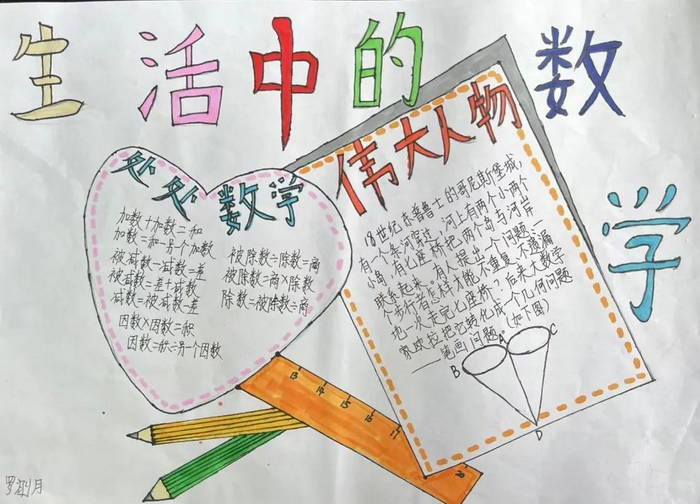 生活中的数学
处处数学
加数+加数=和
加数=和-另个加数
被减数-减数=差
被减数=差+减数
减数=被减数-差
因数×因数=积
因数=积÷另一个因数
被除数÷除数=商
被除数=商×除数
除数=被除数÷商
伟大人物
18世纪东普鲁士的哥尼斯堡城,
有一个条河穿过,河上有两个小两个
小岛,有七座桥把两个岛与河岸
联系起来。有人提出一个问题:一
个步行者怎样才能不重复、不遗漏
地一次走完七座桥?后来大数学
家欧拉把它转化成一个几何问题
——笔画问题。(如下图)
A
B
C
D
13
14
15
16
17